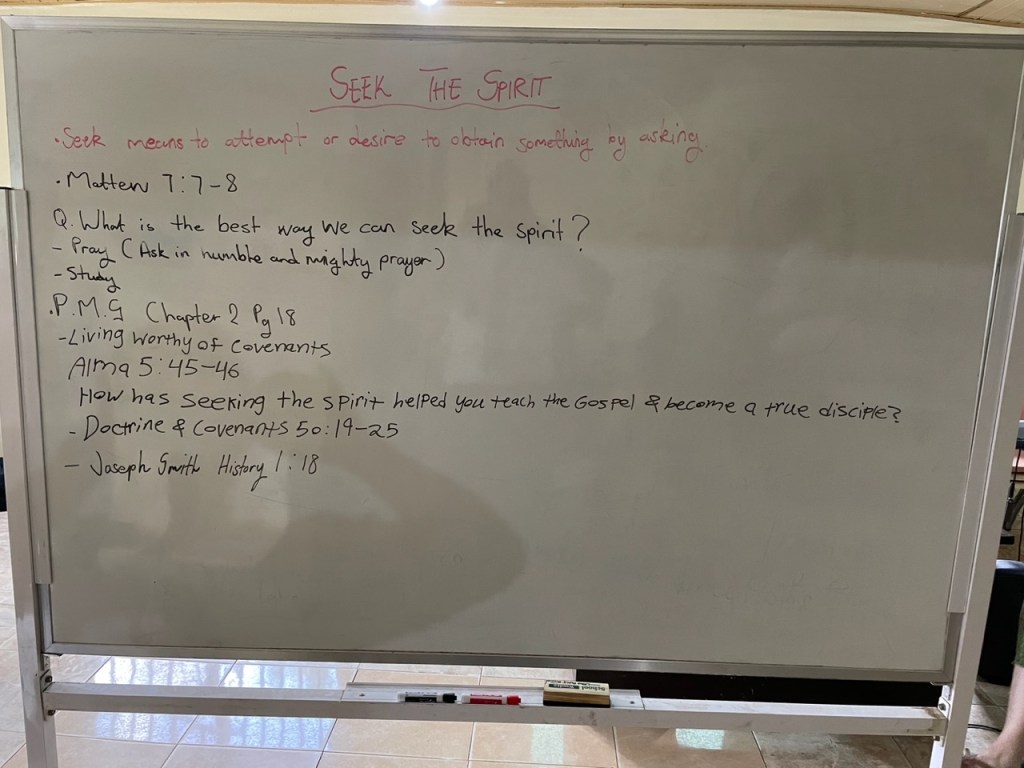 SEEK THE SPIRIT
• Seek means to attempt or desire to obtain something by asking.
• Matthew 7:7-8
Q. What is the best way we can seek the spirit?
- Pray (Ask in humble and mighty prayer)
- Study
• P.M.G Chapter 2 Pg 18
- Living worthy of covenants
Alma 5:45-46
How has seeking the spirit helped you teach the Gospel & become a true disciple?
- Doctrine & Covenants 50:19-25
- Joseph Smith History 1:18
School